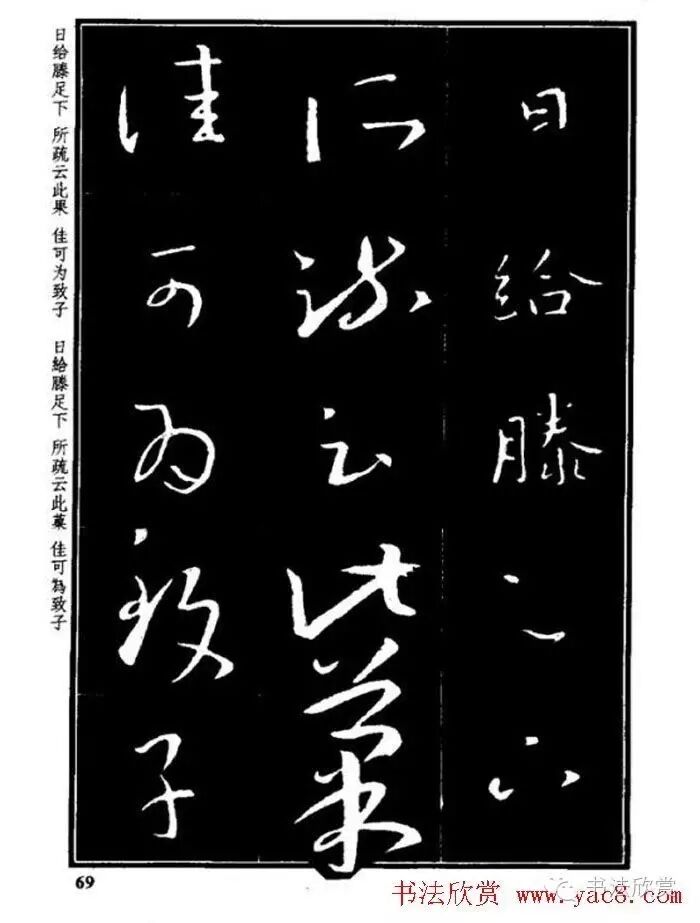 日给滕足下
所疏云此菓
佳可为致子
日给滕足下 所疏云此果 佳可为致子 日給滕足下 所疏云此菓 佳可為致子
69
书法欣赏 www.yac8.com
书法欣赏